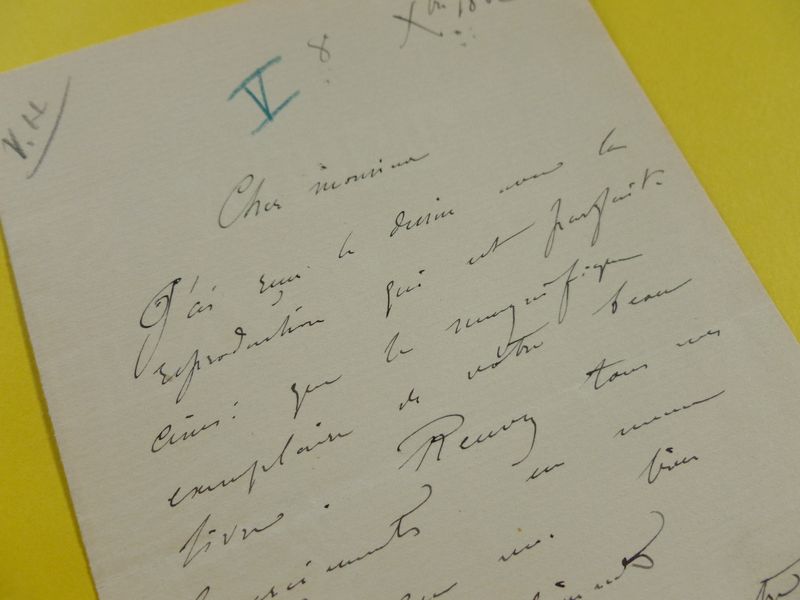 V. H
V
8 Xbre
Cher monsieur
J'ai reçu le dessin avec la
reproduction qui est parfaite
ainsi que le magnifique
exemplaire de votre beau
livre. Recevez tous mes
remerciements